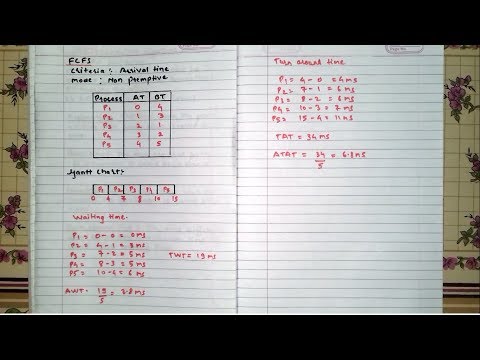 FCFS
Criteria :- Arrival time
mode : Non Premptive
Process AT BT
P1 0 4
P2 1 3
P3 2 1
P4 3 2
P5 4 5
Gantt Chart:-
P1 P2 P3 P4 P5
0 4 7 8 10 15
Waiting time.
P1 = 0-0 = 0ms
P2 = 4-1 = 3ms
P3 = 7-2 = 5ms
P4 = 8-3 = 5ms
P5 = 10-4 = 6ms
TWT = 19ms
AWT. 19/5 = 3.8ms
Turn around time
P1 = 4-0 = 4ms
P2 = 7-1 = 6ms
P3 = 8-2 = 6ms
P4 = 10-3 = 7ms
P5 = 15-4 = 11ms
TAT = 34ms
ATAT = 34/5 = 6.8ms